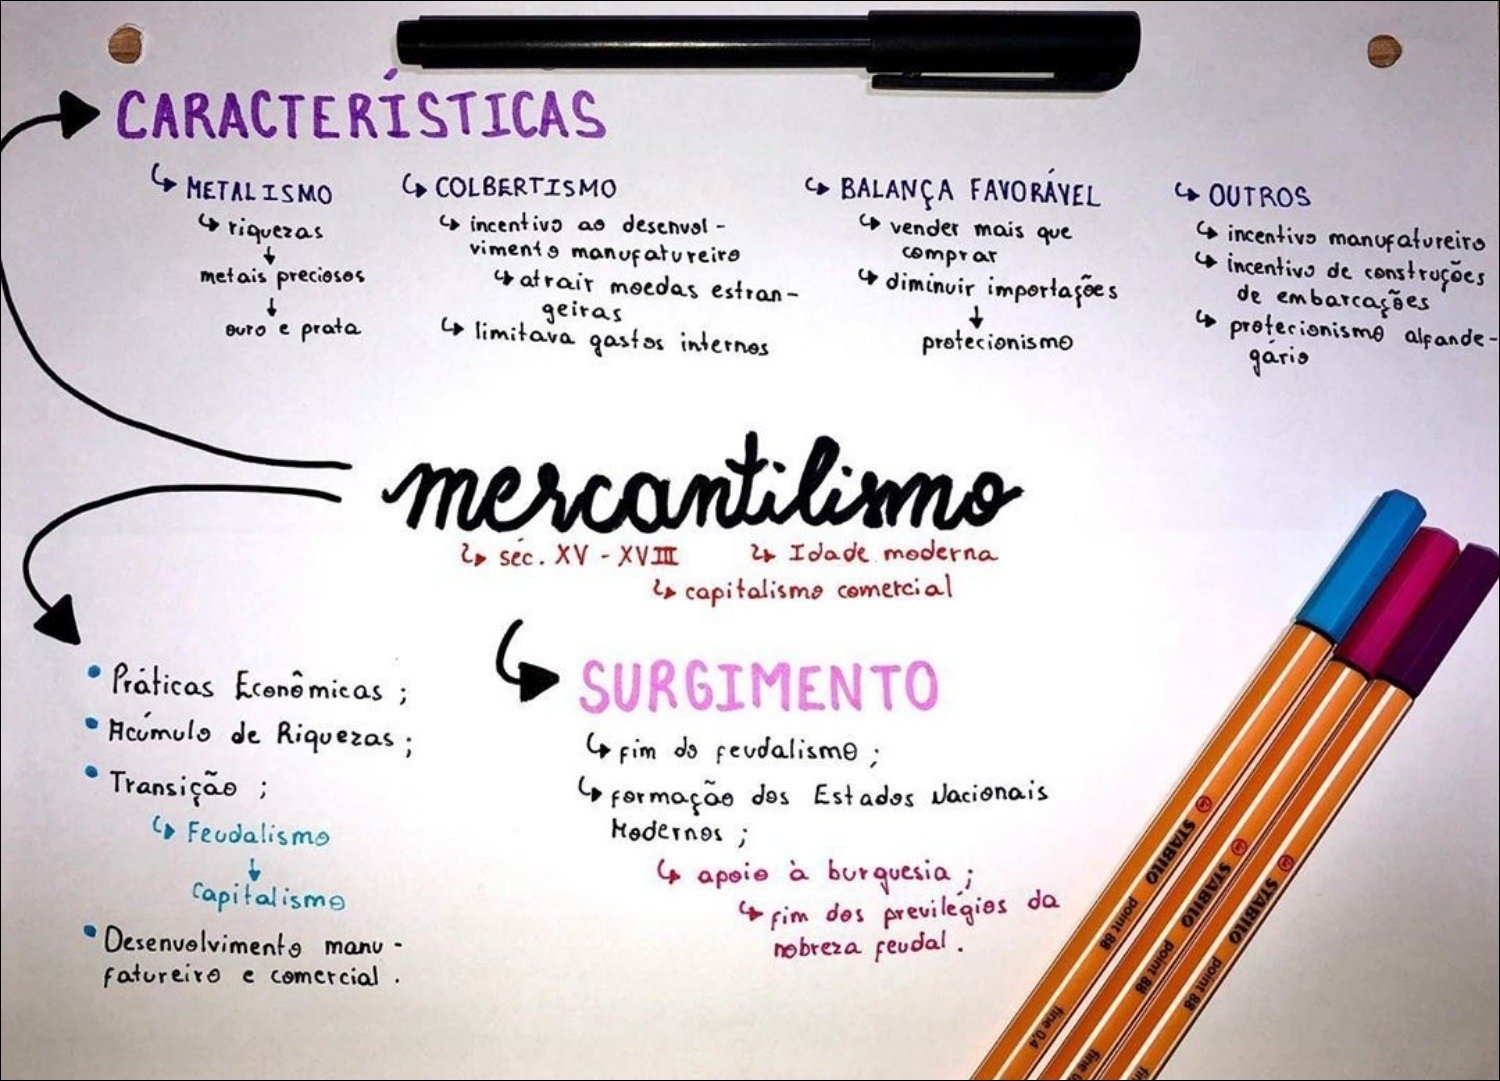 CARACTERÍSTICAS
METALISMO
riquezas
metais preciosos
ouro e prata
COLBERTISMO
incentivo ao desenvol-
vimento manufatureiro
atrair moedas estran-
geiras
limitava gastos internos
BALANÇA FAVORÁVEL
vender mais que
comprar
diminuir importações
protecionismo
OUTROS
incentivo manufatureiro
incentivo de construções
de embarcações
protecionismo alfande-
gário
mercantilismo
séc. XV - XVIII
Idade moderna
capitalismo comercial
• Práticas Econômicas ;
• Acúmulo de Riquezas ;
• Transição ;
Feudalismo
Capitalismo
• Desenvolvimento manu-
fatureiro e comercial .
SURGIMENTO
fim do feudalismo ;
formação dos Estados Nacionais
Modernos ;
apoio à burguesia ;
fim dos previlégios da
nobreza feudal .
STABILO point 88 fine 0,4
STABILO point 88 fine 0
STABILO point 88